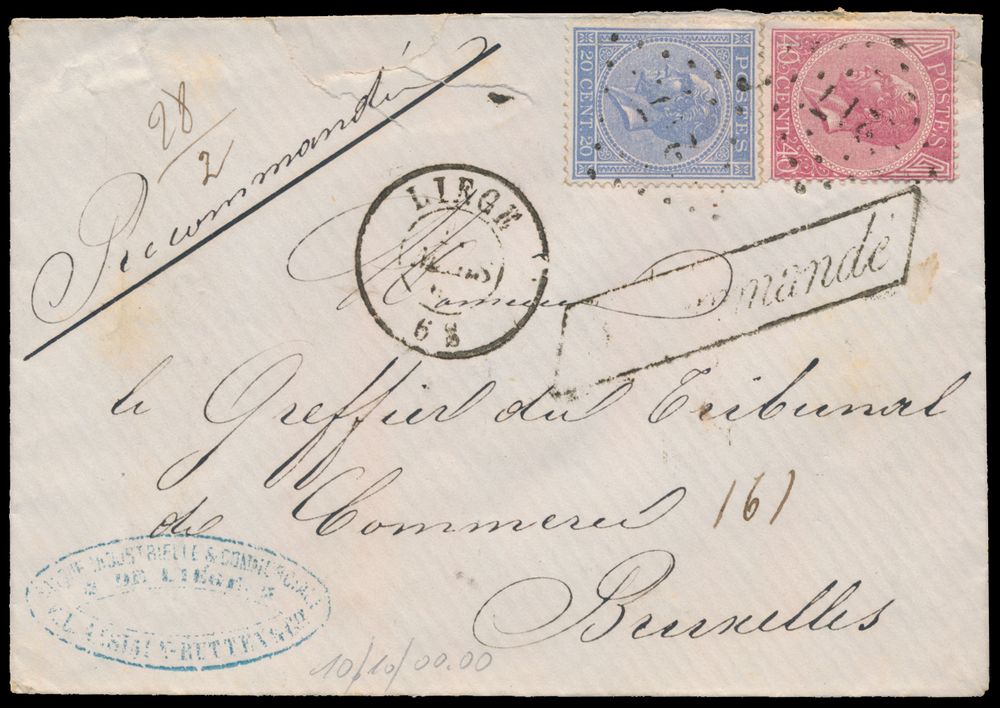 Recommandée
28/2
POSTES
20 CENT. 20
POSTES
40 CENT. 40
LIEGE
68
Monsieur
mandé
le Greffier du Tribunal
de Commerce
161
Bruxelles
INDUSTRIELLE &
DE LIEGE
RUTTEN & Cie
10/10/00.00